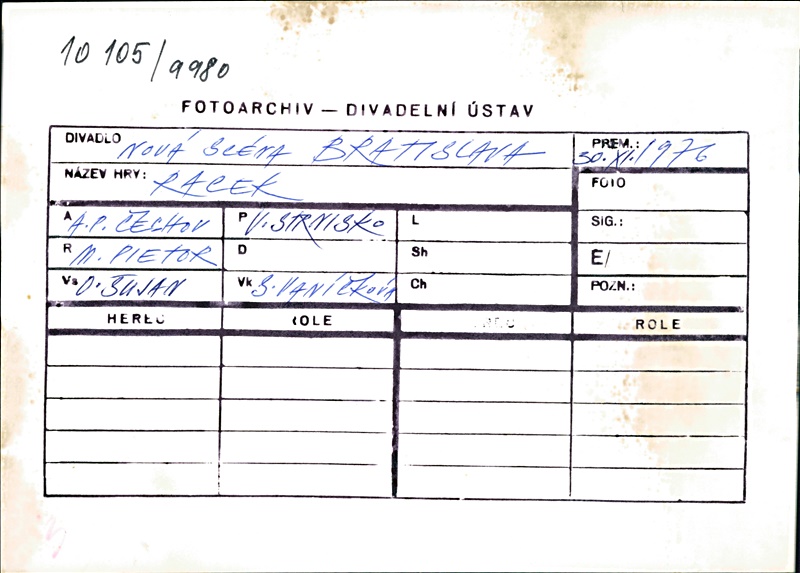 10 105/9980
FOTOARCHIV — DIVADELNÍ ÚSTAV
DIVADLO NOVÁ SCÉNA BRATISLAVA
PREM.: 30. XI. 1976
NÁZEV HRY: RACEK
FOTO
A A.P. ČECHOV P V. STRNISKO L
SIG.:
R M. PIETOR D Sh
E/
Vs O. ŠUJAN Vk S. VANÍČKOVÁ Ch
POZN.:
HEREC ROLE ROLE